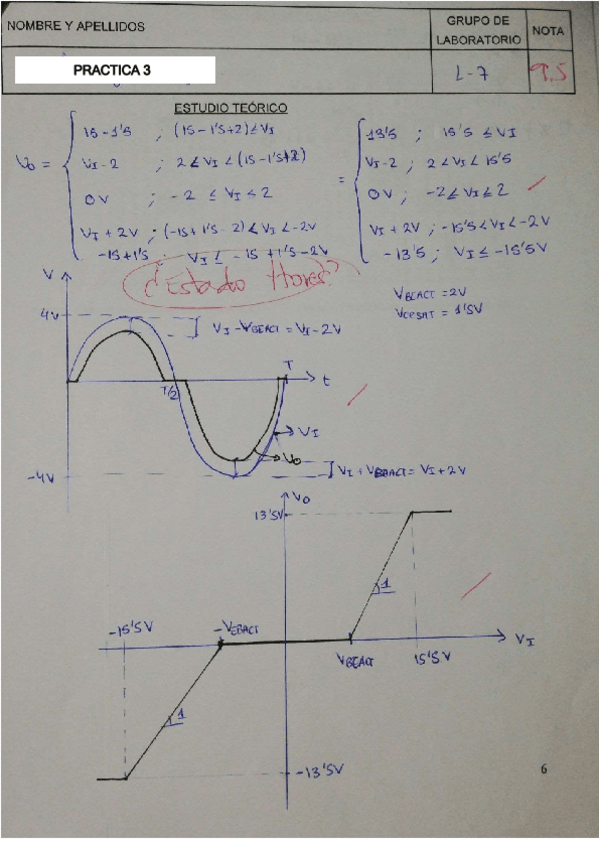 NOMBRE Y APELLIDOS
GRUPO DE LABORATORIO
NOTA
PRACTICA 3
L-7
9,5
ESTUDIO TEÓRICO
Vo =
15-1'5 ; (15-1'5+2) ≤ VI
VI-2 ; 2 ≤ VI < (15-1'5+2)
0V ; -2 ≤ VI ≤ 2
VI + 2V ; (-15+1'5-2) < VI < -2V
-15+1'5 ; VI ≤ -15+1'5-2V
=
13'5 ; 15'5 ≤ VI
VI-2 ; 2 < VI < 15'5
0V ; -2 ≤ VI ≤ 2
VI + 2V ; -15'5 < VI < -2V
-13'5 ; VI ≤ -15'5V
VBEACT = 2V
VCESAT = 1'5V
V
4V
VI - VBEACT = VI - 2V
T/2
T
t
VI
Vo
-4V
VI + VEBACT = VI + 2V
Vo
13'5V
1
-15'5V
-VEBACT
VI
VBEACT
15'5V
1
-13'5V
6